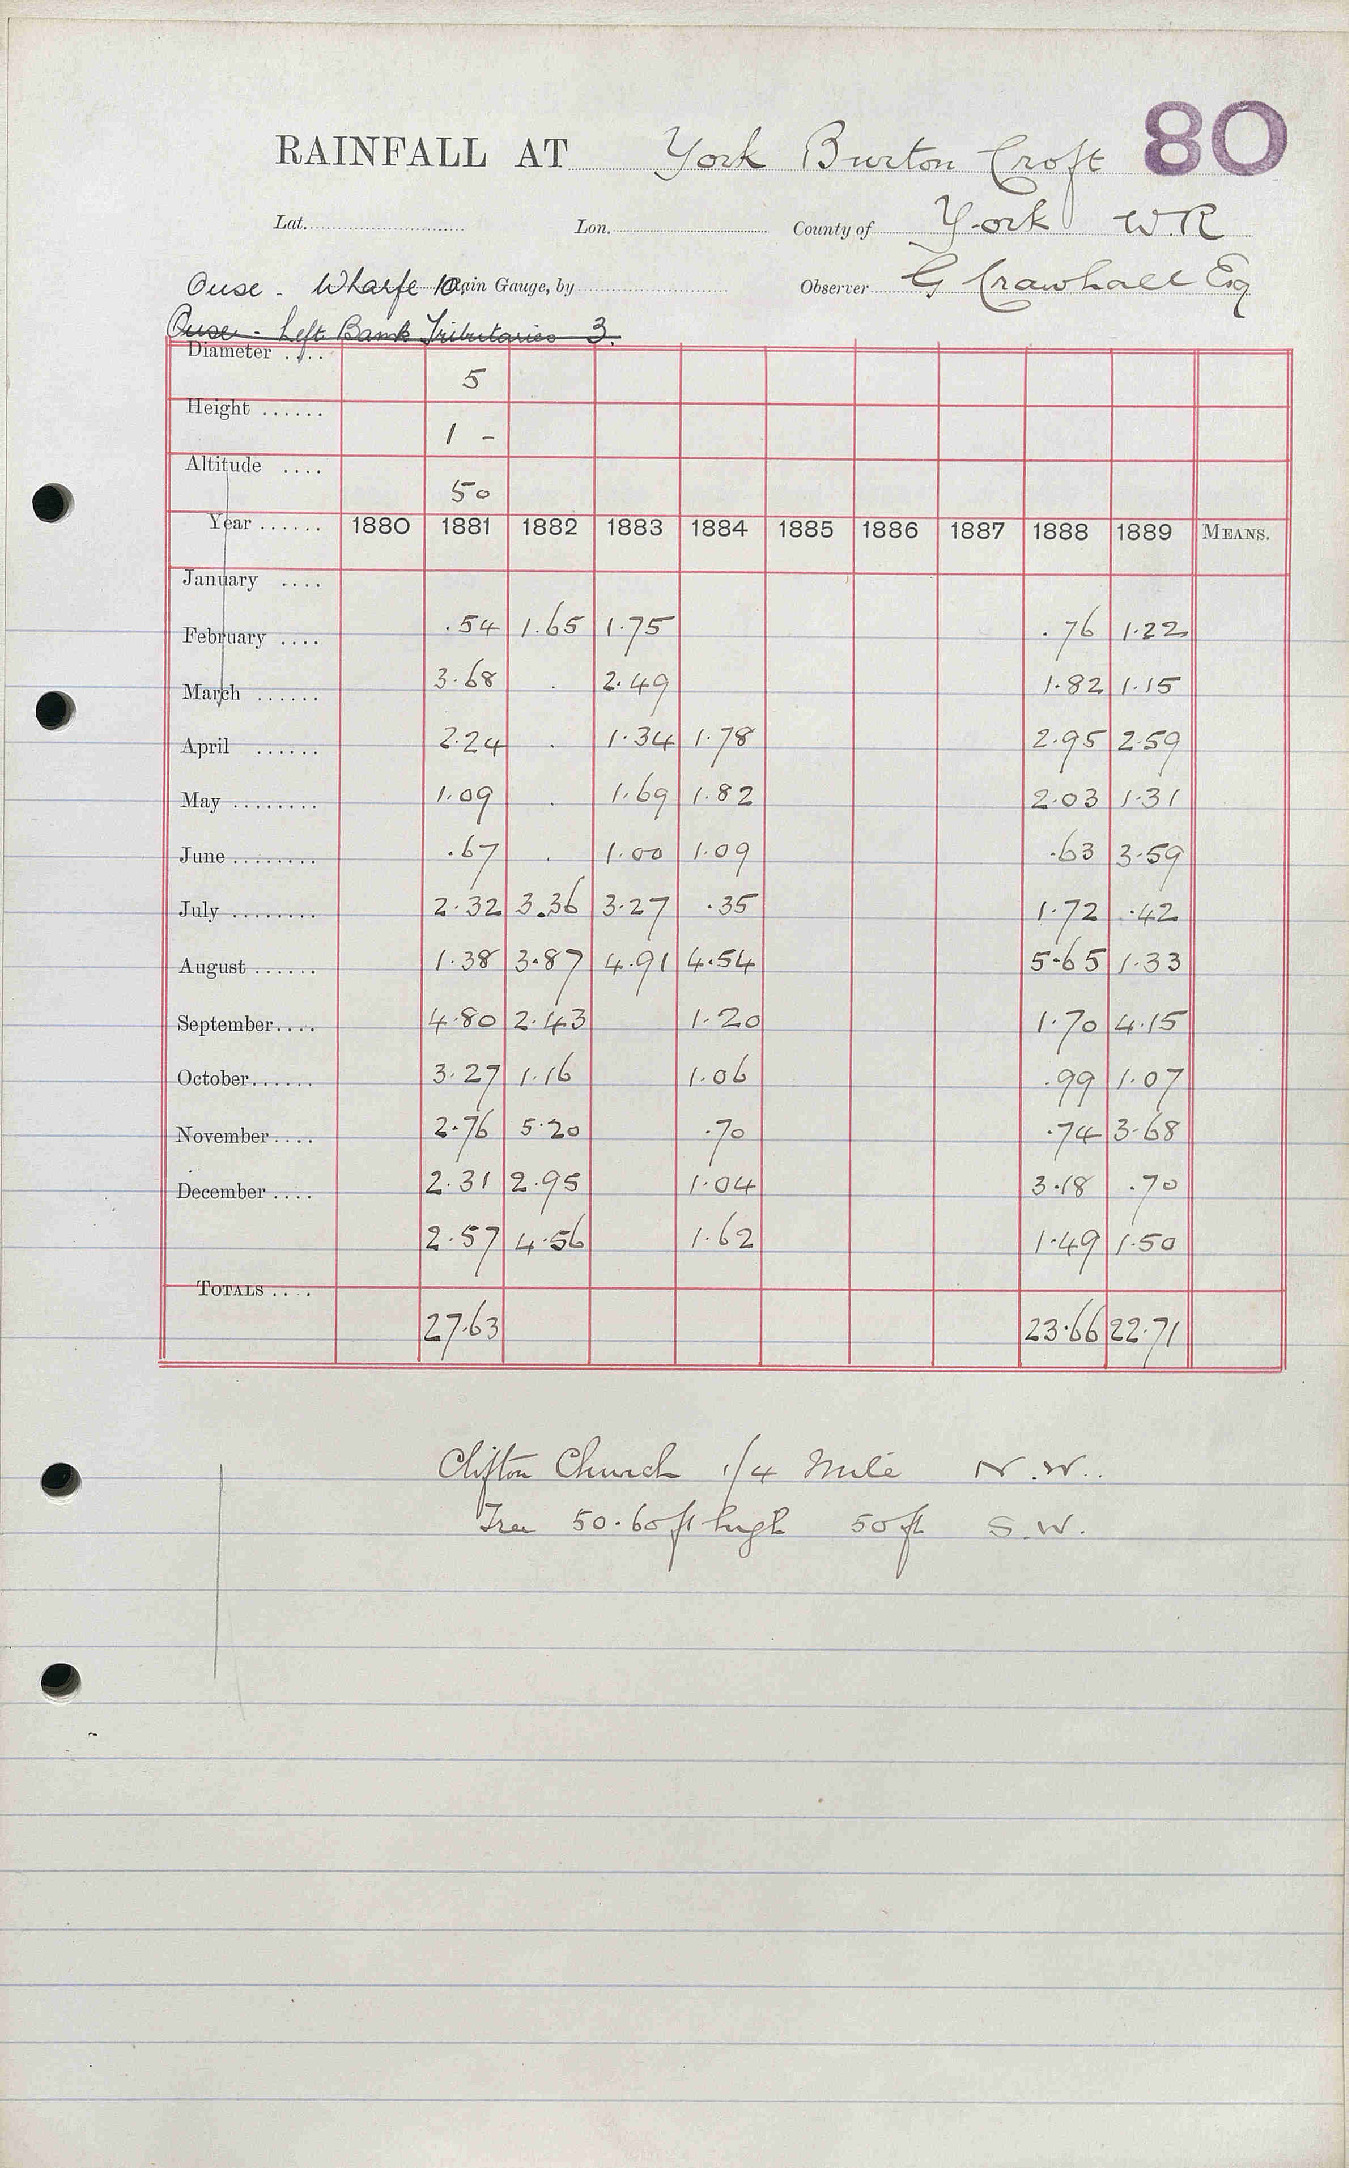 80
RAINFALL AT York Burton Croft
Lat. Lon. County of York W.R
Ouse - Wharfe 10. Rain Gauge, by Observer G Crawhall Esq
Ouse - Left Bank Tributaries 3.
Diameter .... 5
Height ...... 1 -
Altitude .... 50
Year ...... 1880 1881 1882 1883 1884 1885 1886 1887 1888 1889 MEANS.
January .... .54 1.65 1.75 .76 1.22
February .... 3.68 . 2.49 1.82 1.15
March ...... 2.24 . 1.34 1.78 2.95 2.59
April ...... 1.09 . 1.69 1.82 2.03 1.31
May ........ .67 . 1.00 1.09 .63 3.59
June ........ 2.32 3.36 3.27 .35 1.72 .42
July ........ 1.38 3.87 4.91 4.54 5.65 1.33
August ...... 4.80 2.43 1.20 1.70 4.15
September.... 3.27 1.16 1.06 .99 1.07
October...... 2.76 5.20 .70 .74 3.68
November.... 2.31 2.95 1.04 3.18 .70
December .... 2.57 4.56 1.62 1.49 1.50
TOTALS .... 27.63 23.66 22.71
Clifton Church 1/4 Mile N.W..
Tree 50.60 ft high 50 ft S.W.